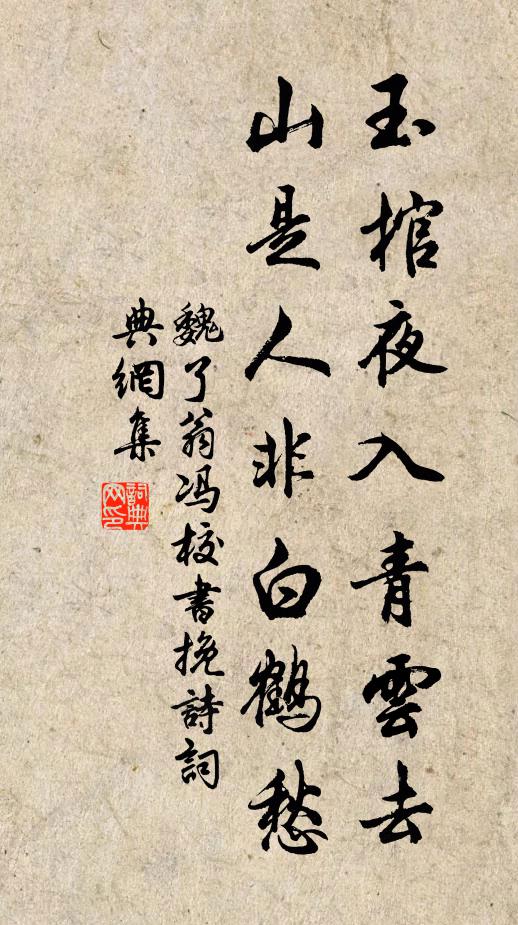 玉棺夜入青雲去
山是人非白鶴愁
魏了翁馮校書挽詩詞
典網集
詞典
网印